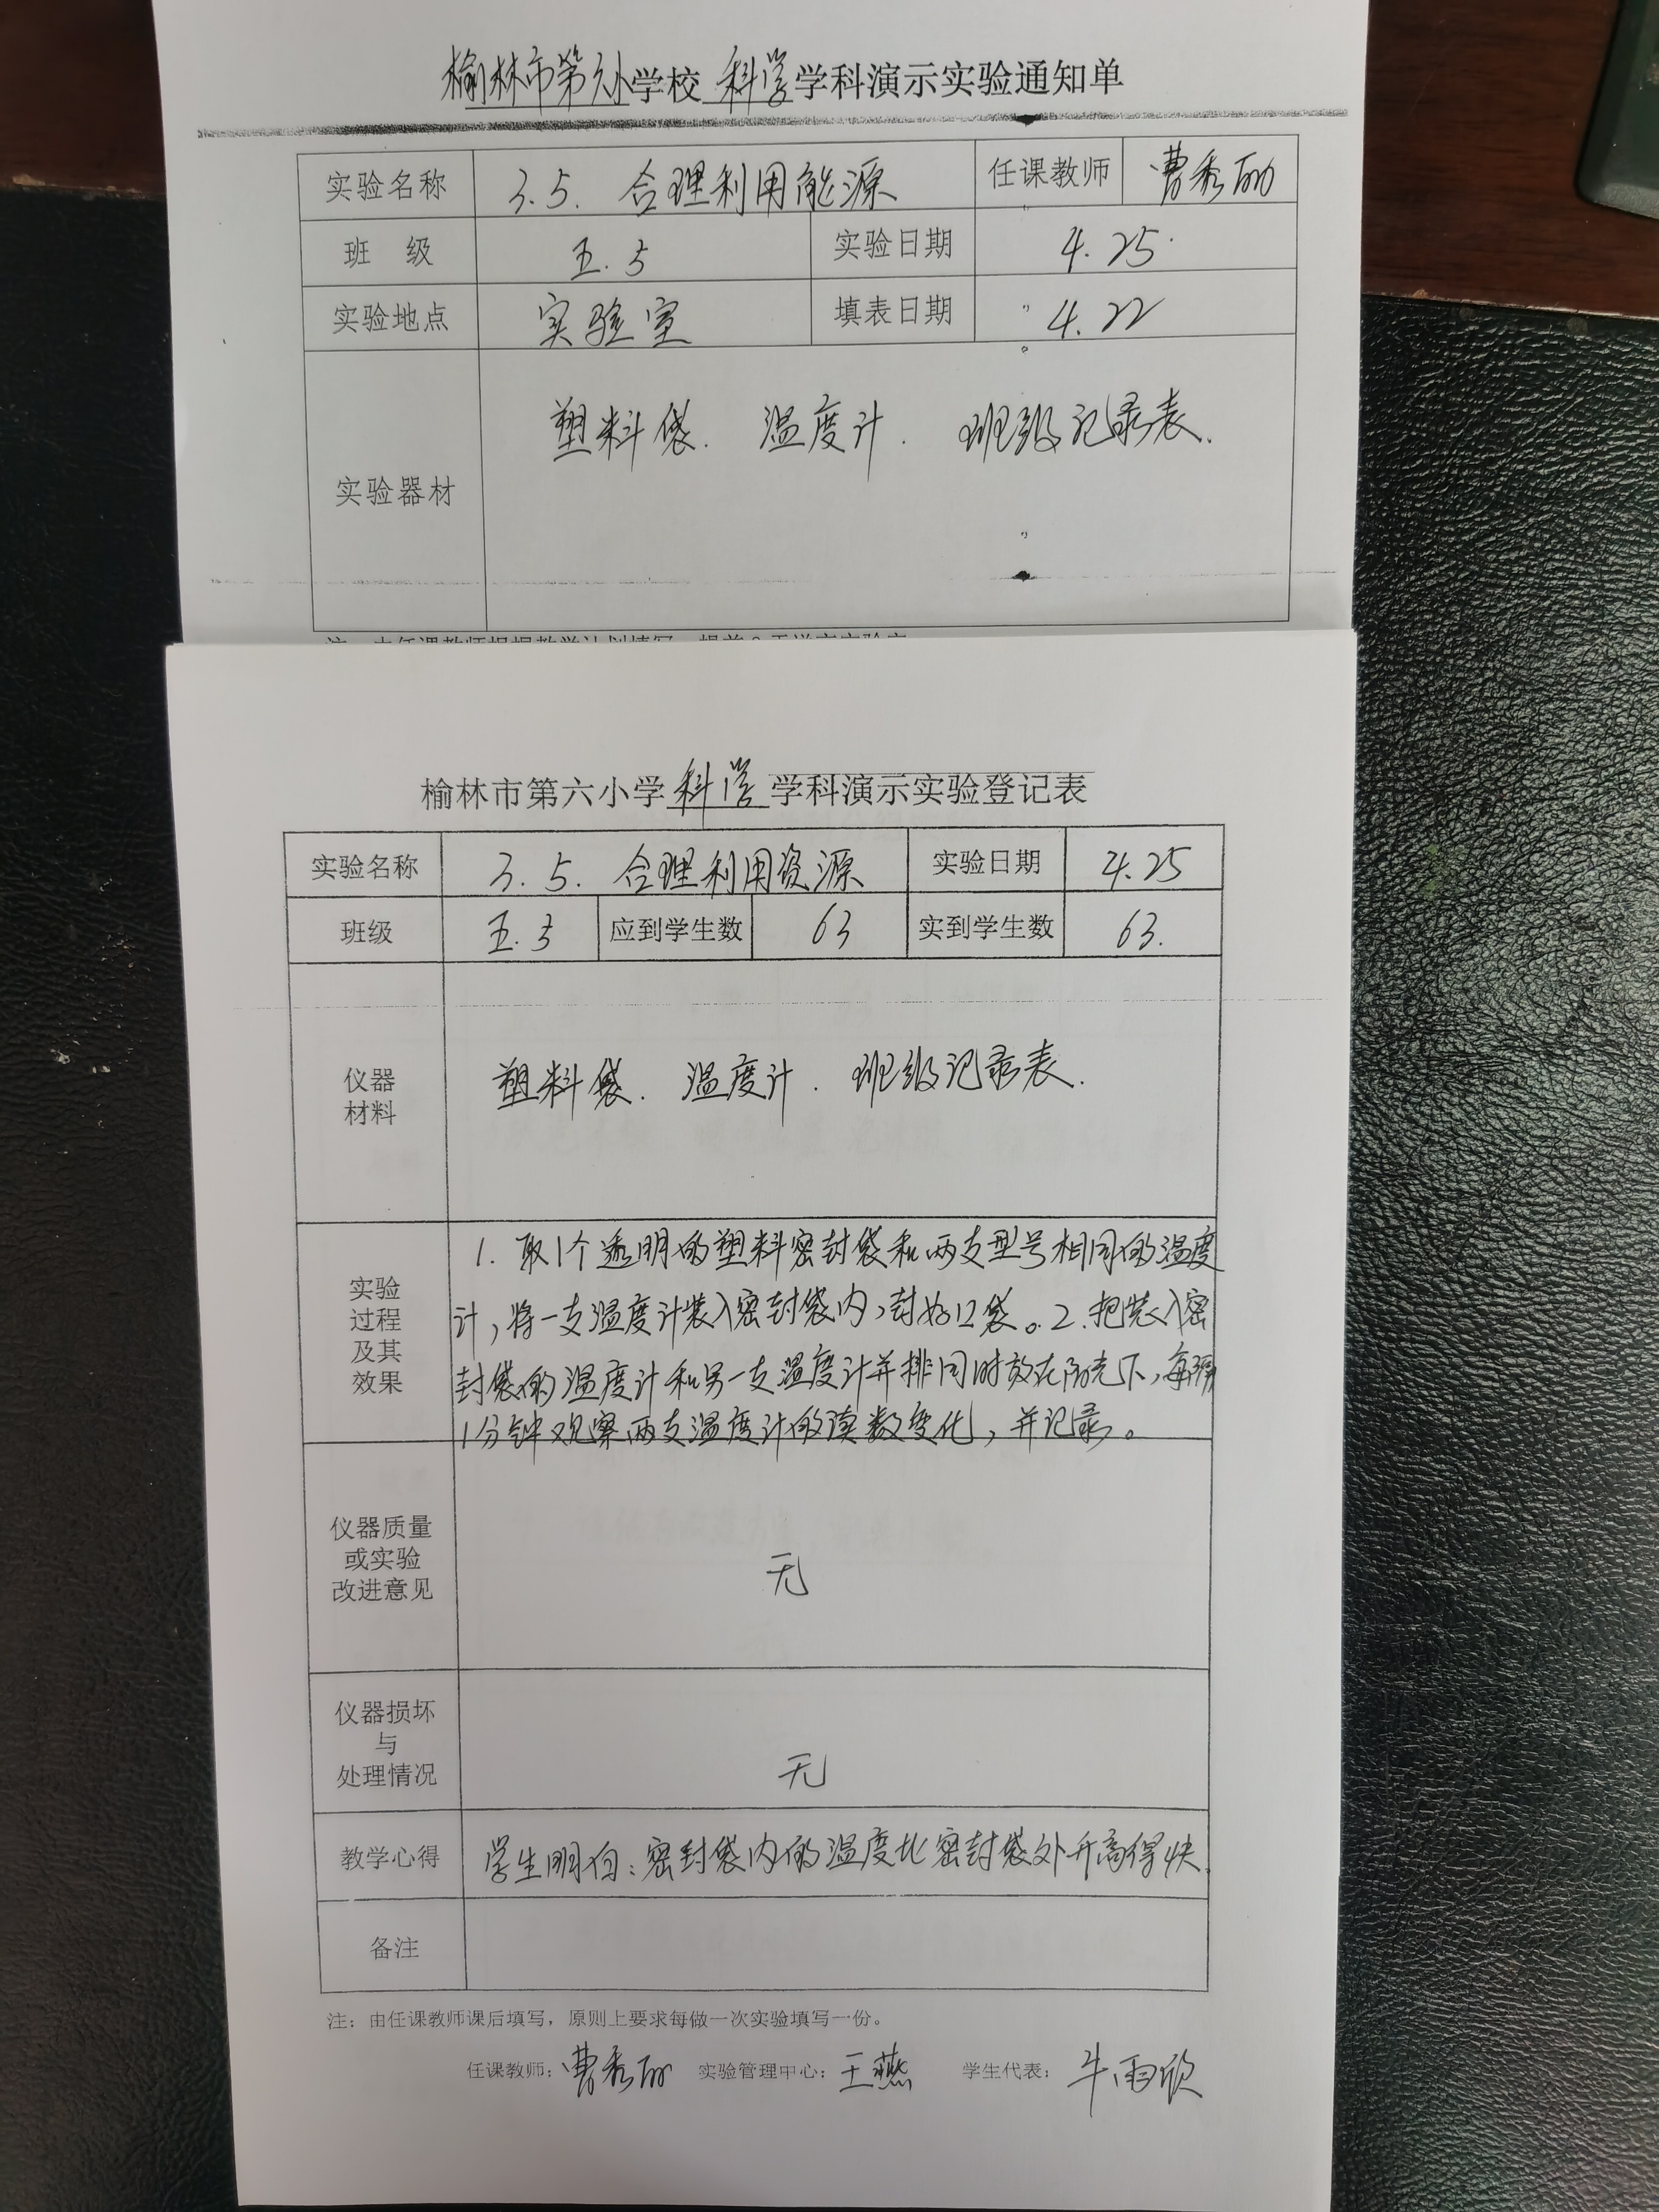 榆林市第六小学校 科学 学科演示实验通知单
实验名称 3.5. 合理利用能源 任课教师 曹秀丽
班 级 五.3 实验日期 4.25
实验地点 实验室 填表日期 4.22
实验器材 塑料袋. 温度计. 班级记录表.
榆林市第六小学 科学 学科演示实验登记表
实验名称 3.5. 合理利用资源 实验日期 4.25
班级 五.3 应到学生数 63 实到学生数 63.
仪器
材料
塑料袋. 温度计. 班级记录表.
实验
过程
及其
效果
1. 取1个透明的塑料密封袋和两支型号相同的温度
计,将一支温度计装入密封袋内,封好口袋。2.把装入密
封袋的温度计和另一支温度计并排同时放在阳光下,每隔
1分钟观察两支温度计的读数变化,并记录。
仪器质量
或实验
改进意见
无
仪器损坏
与
处理情况
无
教学心得 学生明白:密封袋内的温度比密封袋外升高得快.
备注
注:由任课教师课后填写,原则上要求每做一次实验填写一份。
任课教师:曹秀丽 实验管理中心:王燕 学生代表:牛雨欣